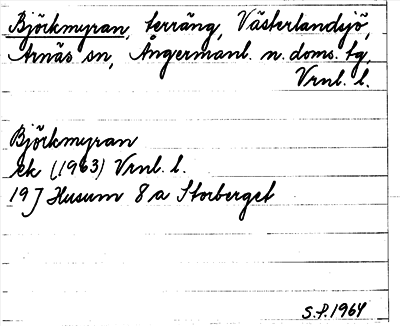 Björkmyran, terräng, Västerlandsjö,
Arnäs sn, Ångermanl. n. doms. tg,
Vrnl. l.
Björkmyran
ek (1963) Vrnl. l.
19J Husum 8 a Storberget
S.P. 1964